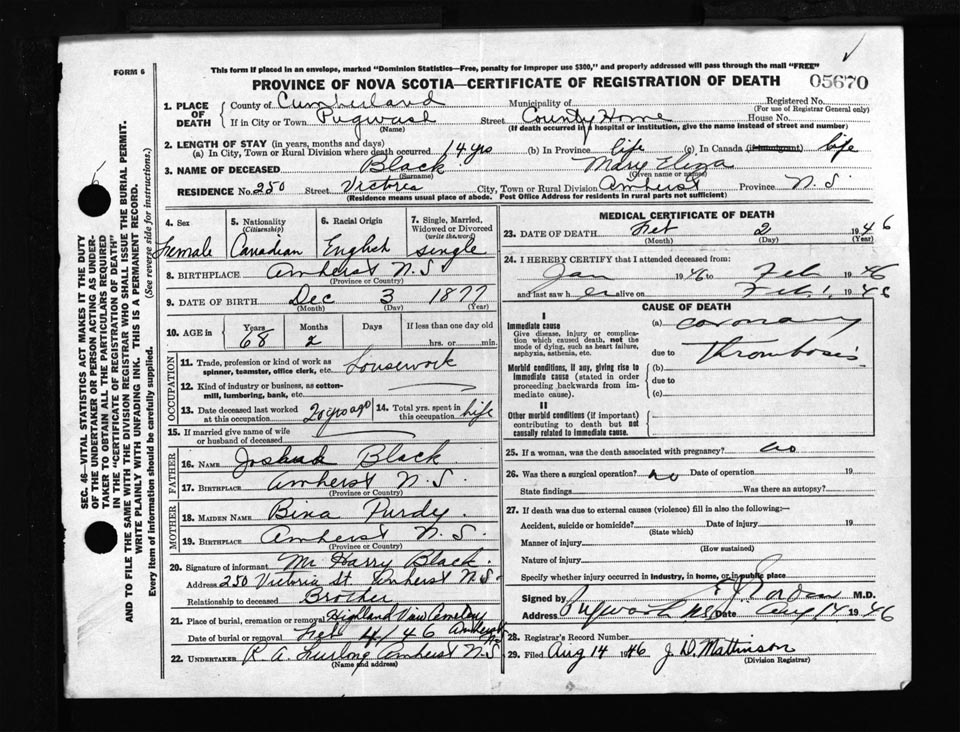 FORM 6
This form if placed in an envelope, marked "Dominion Statistics—Free, penalty for improper use $300," and properly addressed will pass through the mail "FREE"
PROVINCE OF NOVA SCOTIA—CERTIFICATE OF REGISTRATION OF DEATH
05670
1. PLACE OF DEATH County of Cumberland Municipality of Registered No.
(For use of Registrar General only)
If in City or Town Pugwash Street County Home House No.
(Name) (If death occurred in a hospital or institution, give the name instead of street and number)
2. LENGTH OF STAY (in years, months and days)
(a) In City, Town or Rural Division where death occurred 14 yrs (b) In Province life (c) In Canada (if immigrant) life
3. NAME OF DECEASED Black Mary Eliza
(Surname) (Given name or names)
RESIDENCE No. 250 Street Victoria City, Town or Rural Division Amherst Province N.S.
(Residence means usual place of abode. Post Office Address for residents in rural parts not sufficient)
4. Sex 5. Nationality (Citizenship) 6. Racial Origin 7. Single, Married, Widowed or Divorced (write the word)
Female Canadian English single
8. BIRTHPLACE Amherst N.S.
(Province or Country)
9. DATE OF BIRTH Dec 3 1877
(Month) (Day) (Year)
10. AGE in Years Months Days If less than one day old
68 2 hrs. or min.
OCCUPATION
11. Trade, profession or kind of work as spinner, teamster, office clerk, etc. Housework
12. Kind of industry or business, as cotton-mill, lumbering, bank, etc.
13. Date deceased last worked at this occupation 20 yrs ago 14. Total yrs. spent in this occupation Life
15. If married give name of wife or husband of deceased
FATHER
16. NAME Joshua Black
17. BIRTHPLACE Amherst N.S.
(Province or Country)
MOTHER
18. MAIDEN NAME Bina Purdy
19. BIRTHPLACE Amherst N.S.
(Province or Country)
20. Signature of informant Mr. Harry Black
Address 250 Victoria St Amherst N.S.
Relationship to deceased Brother
21. Place of burial, cremation or removal Highland View Cemetery
Date of burial or removal Feb 4/46 Amherst N.S.
22. UNDERTAKER R. A. Furlong Amherst N.S.
(Name and address)
MEDICAL CERTIFICATE OF DEATH
23. DATE OF DEATH Feb 2 1946
(Month) (Day) (Year)
24. I HEREBY CERTIFY that I attended deceased from:
Jan 1946 to Feb 1946
and last saw her alive on Feb 1, 1946
CAUSE OF DEATH
I
Immediate cause (a) coronary
Give disease, injury or complication which caused death, not the mode of dying, such as heart failure, asphyxia, asthenia, etc.
due to Thrombosis
Morbid conditions, if any, giving rise to immediate cause (stated in order proceeding backwards from immediate cause).
(b)
due to
(c)
II
Other morbid conditions (if important) contributing to death but not causally related to immediate cause.
25. If a woman, was the death associated with pregnancy? no
26. Was there a surgical operation? no Date of operation 19
State findings Was there an autopsy?
27. If death was due to external causes (violence) fill in also the following:—
Accident, suicide or homicide? Date of injury 19
(State which)
Manner of injury
(How sustained)
Nature of injury
Specify whether injury occurred in industry, in home, or in public place
Signed by M.D.
Address Pugwash N.S. Date Aug 14 1946
28. Registrar's Record Number
29. Filed Aug 14 1946 J. D. Mattinson
(Division Registrar)
SEC. 46—VITAL STATISTICS ACT MAKES IT THE DUTY
OF THE UNDERTAKER OR PERSON ACTING AS UNDER-
TAKER TO OBTAIN ALL THE PARTICULARS REQUIRED
IN THE "CERTIFICATE OF REGISTRATION OF DEATH"
AND TO FILE THE SAME WITH THE DIVISION REGISTRAR WHO SHALL ISSUE THE BURIAL PERMIT.
WRITE PLAINLY WITH UNFADING INK. THIS IS A PERMANENT RECORD.
Every item of information should be carefully supplied. (See reverse side for instructions.)